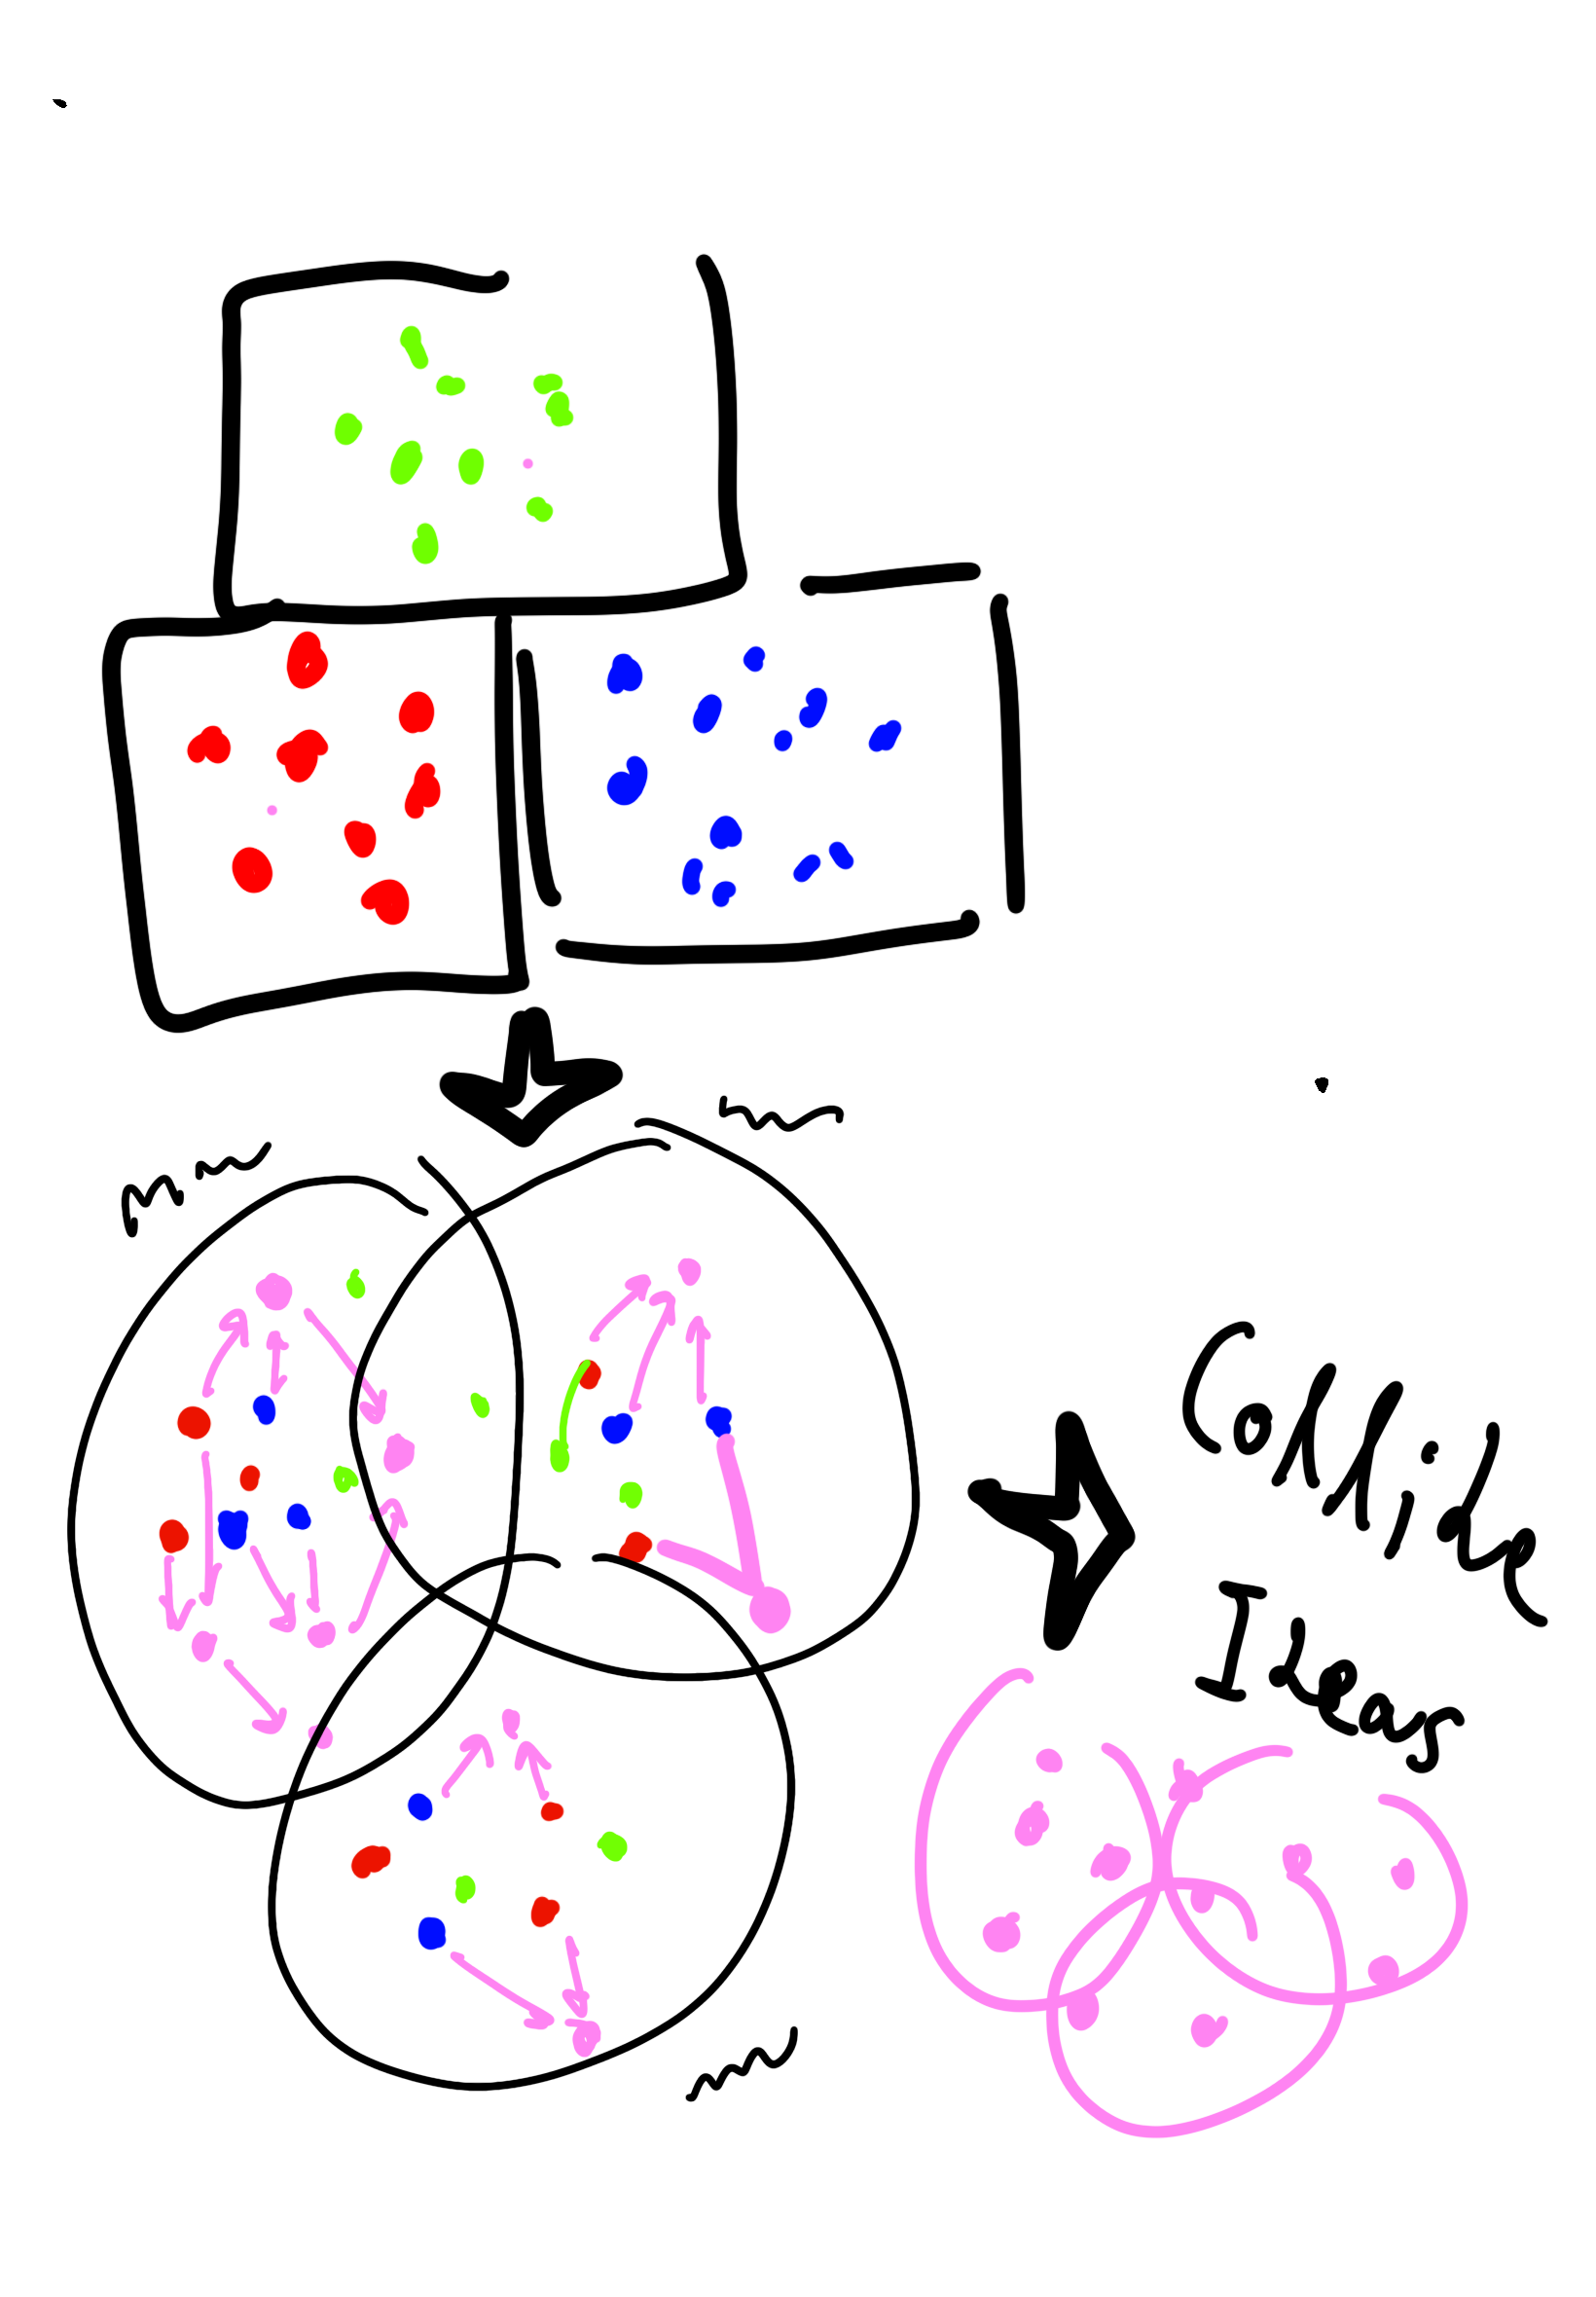 Collide
Ideas